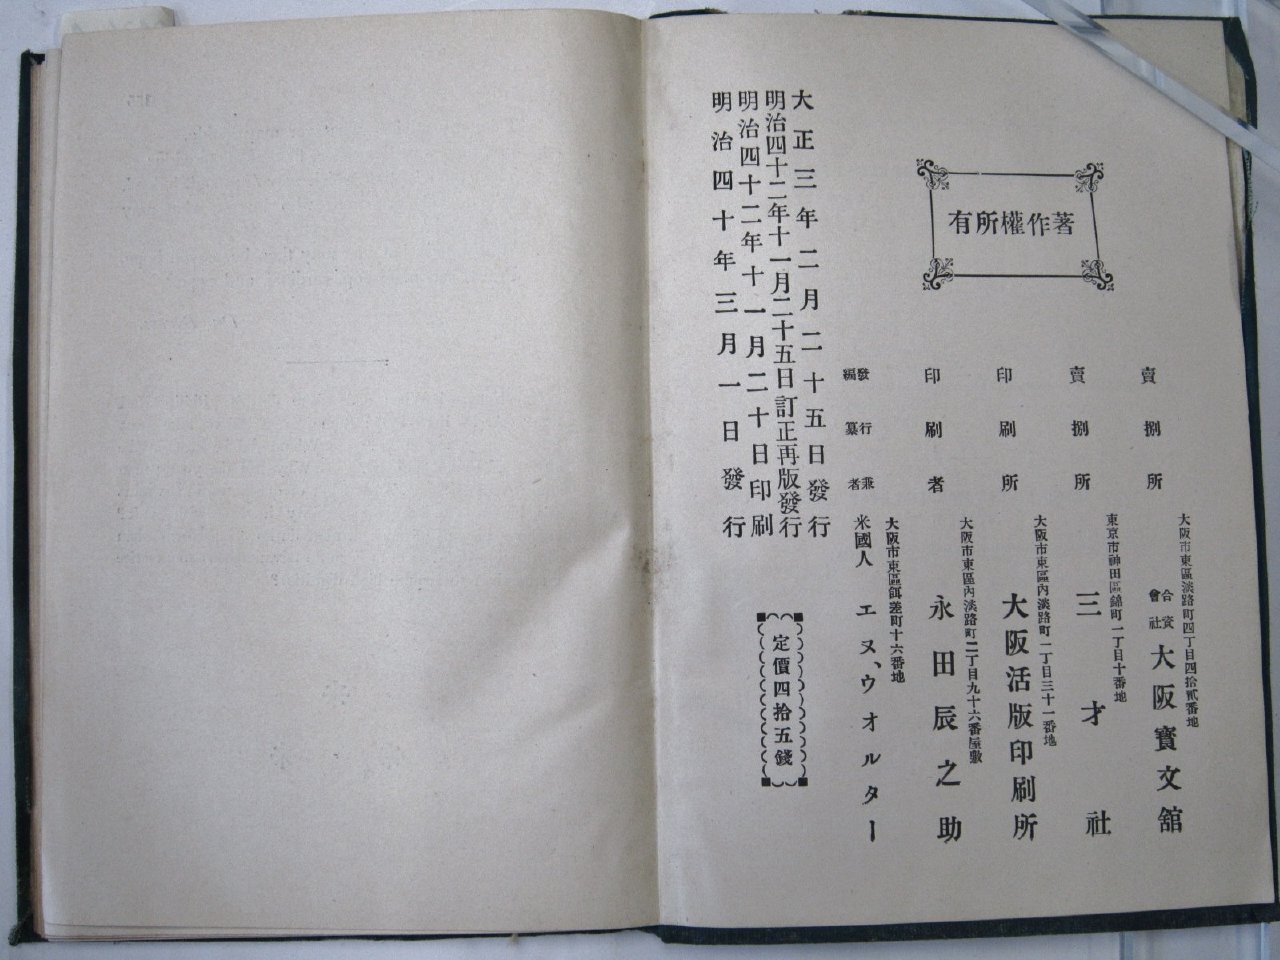 著作權所有
賣捌所
大阪市東區淡路町四丁目四拾貳番地
合資會社 大阪寳文舘
賣捌所
東京市神田區錦町一丁目十番地
三才社
印刷所
大阪市東區內淡路町一丁目三十一番地
大阪活版印刷所
印刷者
大阪市東區內淡路町二丁目九十六番屋敷
永田辰之助
發行兼
編纂者
大阪市東區餌差町十六番地
米國人 エヌ、ウオルター
大正三年二月二十五日發行
明治四十二年十一月二十五日訂正再版發行
明治四十二年十一月二十日印刷
明治四十年三月一日發行
定價四拾五錢